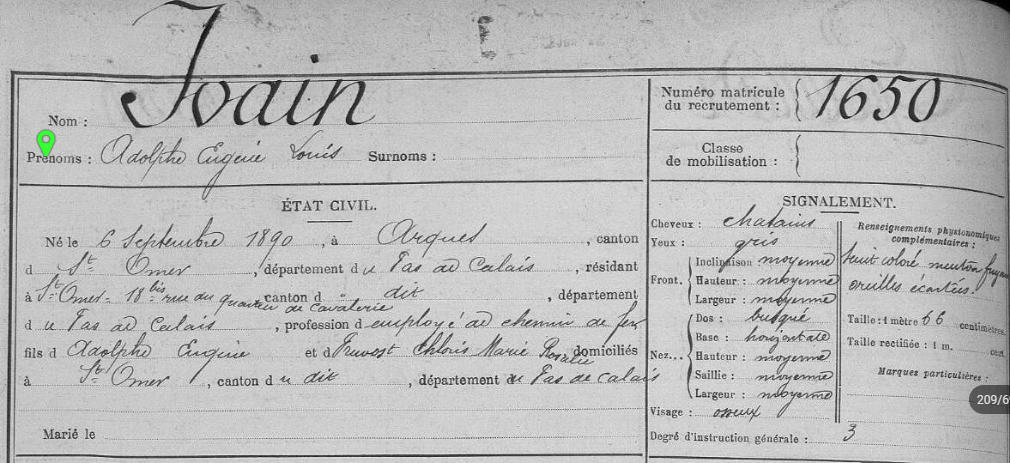 Nom : Ivain
Prénoms : Adolphe Eugène Louis Surnoms :
ÉTAT CIVIL.
Né le 6 Septembre 1890, à Arques, canton
d St Omer, département du Pas de Calais, résidant
à St Omer - 18 bis rue du quartier de cavalerie, canton d dit, département
du Pas de Calais, profession d employé de chemin de fer
fils d Adolphe Eugène et d Pruvost Chloris Marie Rosalie domiciliés
à St Omer, canton du dit, département du Pas de Calais
Marié le
Numéro matricule
du recrutement : 1650
Classe
de mobilisation :
SIGNALEMENT.
Cheveux : chatains
Yeux : gris
Front. Inclinaison moyenne
Hauteur : moyenne
Largeur : moyenne
Nez... Dos : busqué
Base : horizontale
Hauteur : moyenne
Saillie : moyenne
Largeur : moyenne
Visage : osseux
Degré d'instruction générale : 3
Renseignements physionomiques
complémentaires :
teint coloré menton fuyan
oreilles écartées
Taille : 1 mètre 66 centimètres.
Taille rectifiée : 1 m. cent.
Marques particulières :
209/6